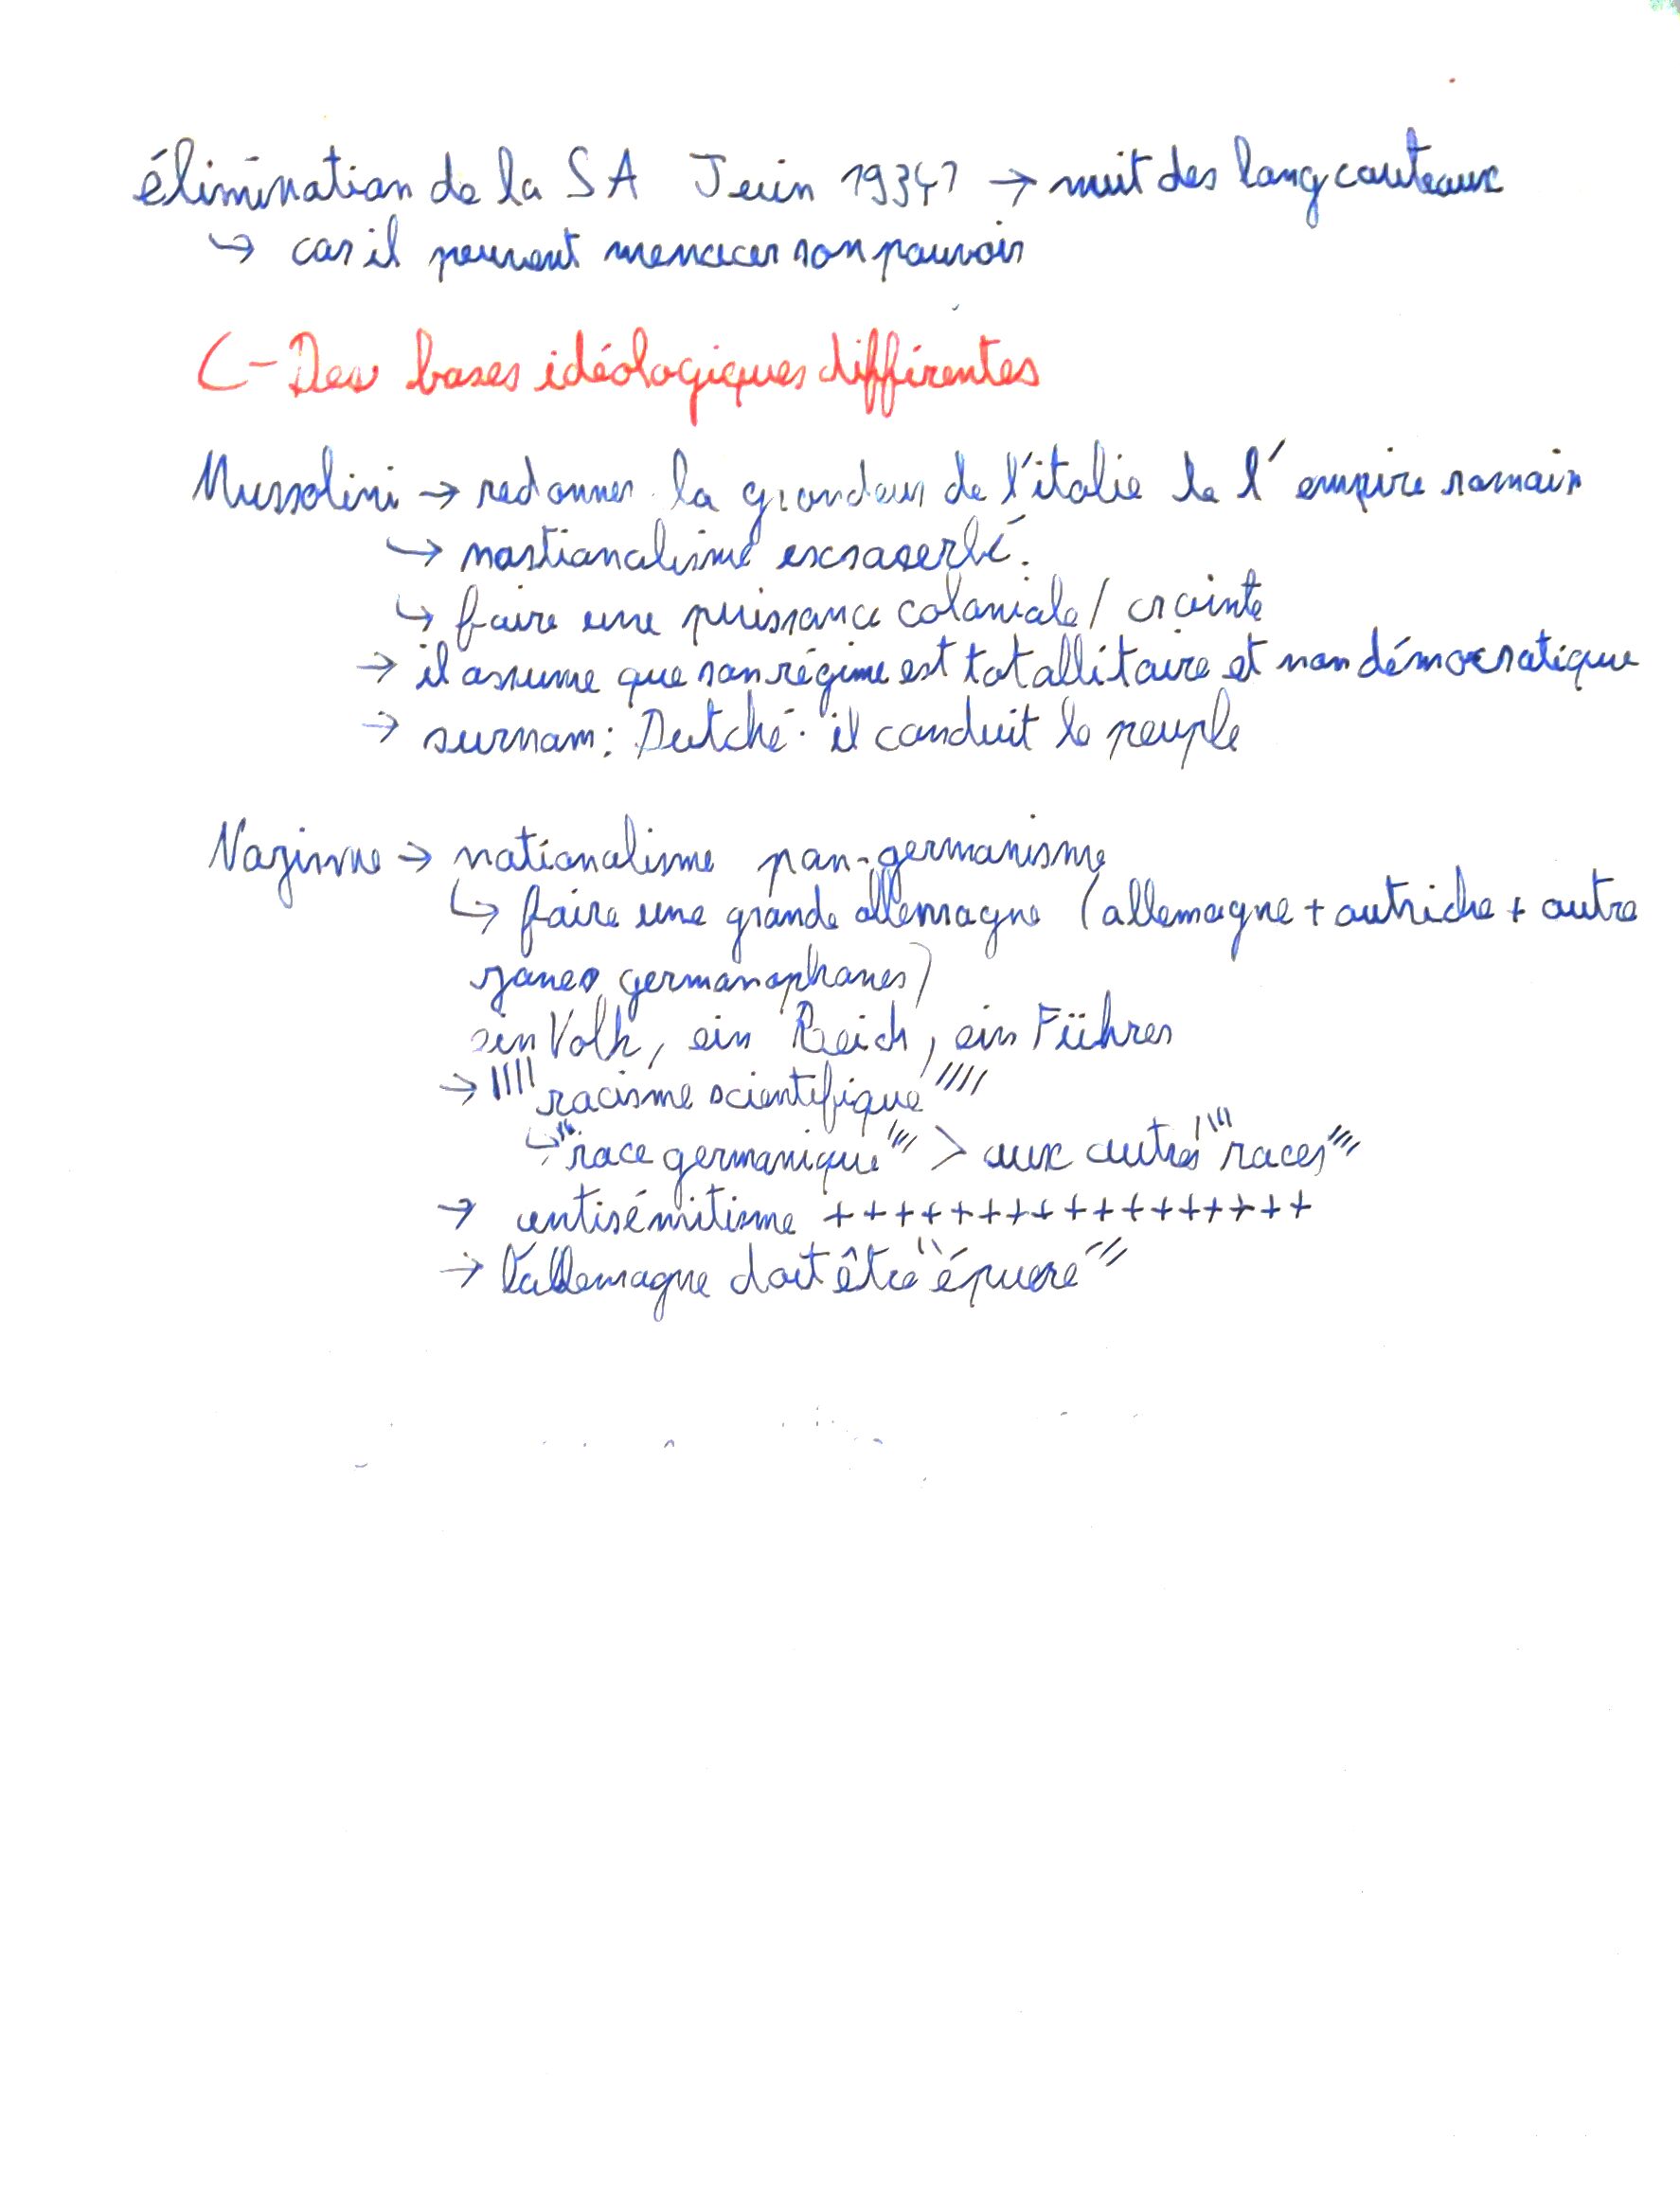 élimination de la SA Juin 1934 → nuit des long couteaux
↳ car il peuvent menacer son pouvoir
C- Des bases idéologiques différentes
Mussolini → redonner la grandeur de l'italie de l'empire romain
↳ nastionalisme exsacerbé.
↳ faire une puissance coloniale / crainte
→ il assume que son régime est totallitaire et non démocratique
→ surnom : Dutché : il conduit le peuple
Nazisme → nationalisme pan-germanisme
↳ faire une grande allemagne (allemagne + autriche + autre
zones germanophones)
ein Volk, ein Reich, ein Führer
→ """" racisme scientifique """"
↳ """ race germanique """ > aux autres """ races """
→ antisémitisme + + + + + + + + + + + + + + + + +
→ l'allemagne doit être "épurer"